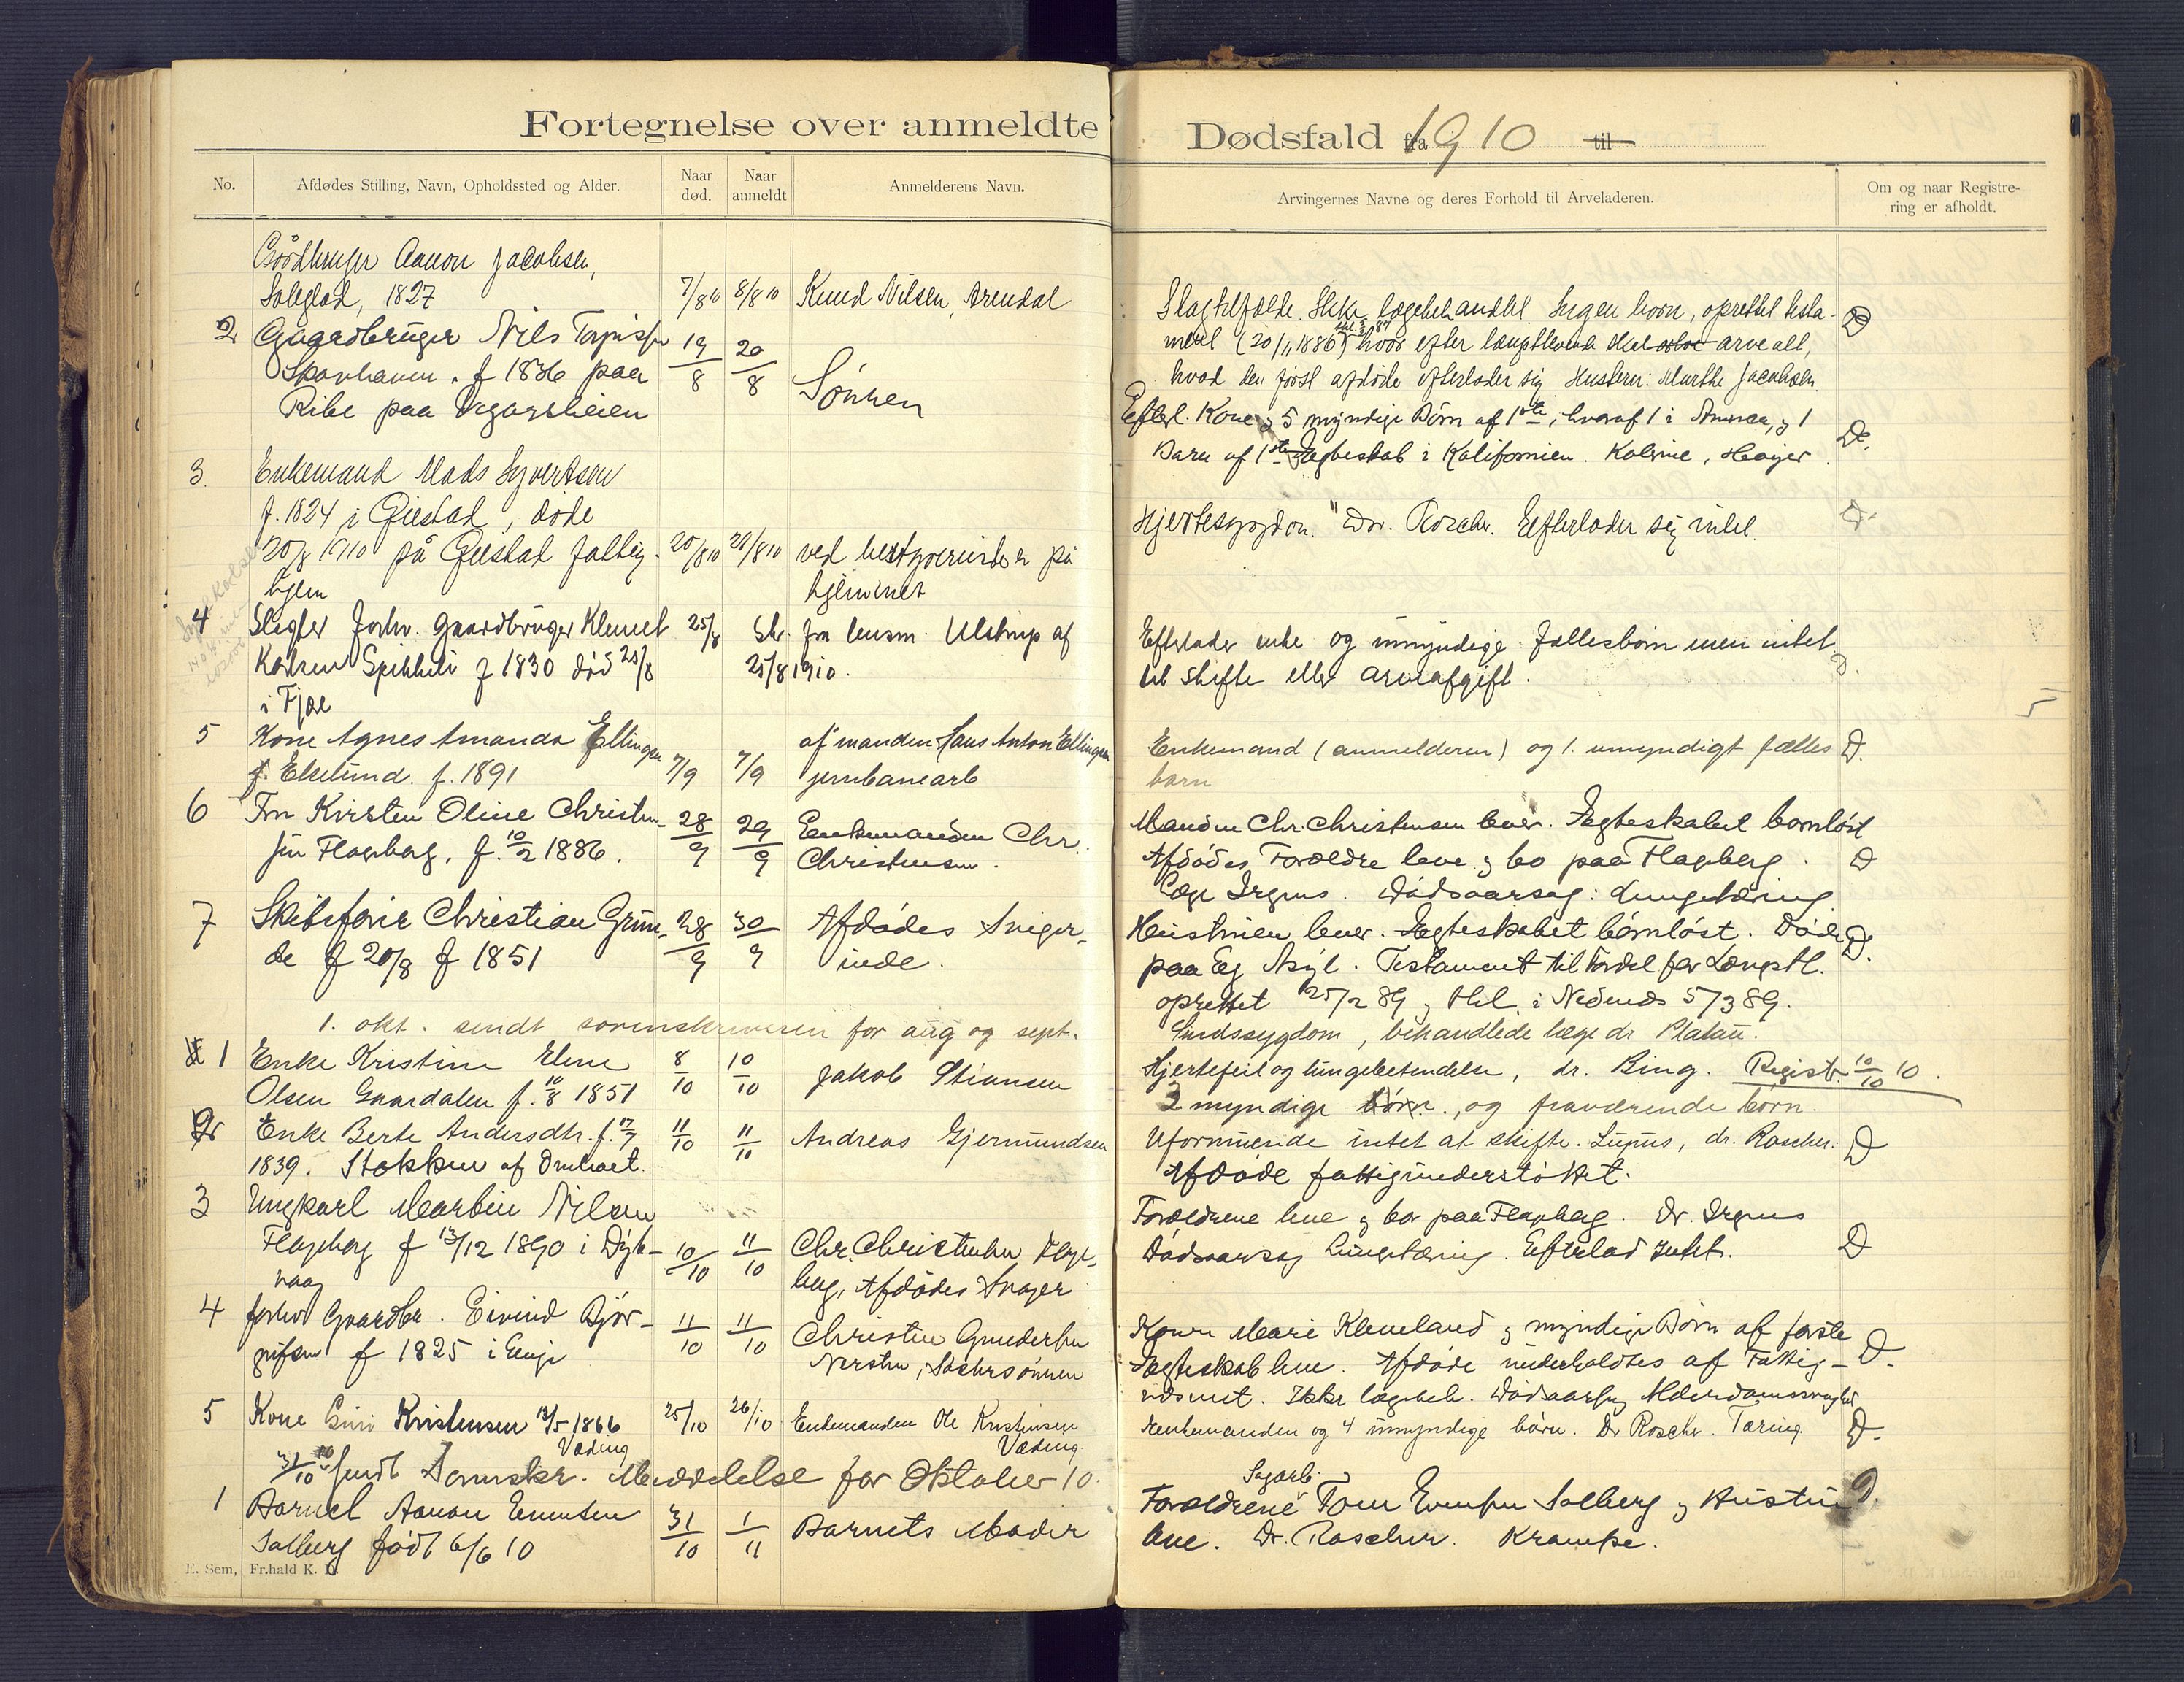 Fortegnelse over anmeldte Dødsfald fra 1910 til
No.
Afdødes Stilling, Navn, Opholdssted og Alder.
Naar død.
Naar anmeldt
Anmelderens Navn.
Arvingernes Navne og deres Forhold til Arveladeren.
Om og naar Registrering er afholdt.
Aanon Jacobsen,
1827 7/8 10 8/8 10 Knud Nilsen, Arendal
Slagtilfælde. Ikke lægebehandlet. Ingen børn, oprettet testa-
ment (20/1 1886) hvor efter længstlevende skal arve alt,
hvad den først afdøde efterlader sig Hustru: Marthe Jacobsen.
D
2 Gaardbruger Nils Terjesen 19/8 20/8 Sønnen
f 1836 paa
Ribe paa Vegarsheien
Efterl. Kone & 5 myndige Børn af 1ste, hvoraf 1 i Amerika, & 1
Barn af 1ste Ægteskab i Kalifornien.
D.
3. Enkemand Mads Syvertsen
f. 1824 i Gjestad, døde
20/8 1910 på Gjestad fattig- 20/8 10 20/8 10 ved bestyrerinden på
hjem hjemmet
Hjertesygdom. Dr. Roscher. Efterlader sig intet.
D.
4 Slagter forhv. gaardbruger Klemet 25/8 Skr. fra lensm. Ulstrup af
Spikkeli f 1830 død 25/8 25/8 1910.
i Fjære
Efterlader enke og umyndige fællesbørn men intet
til skifte eller arveafgift.
D.
5 Kone Agnes Amanda Ellingsen 7/9 7/9 af manden Hans Anton Ellingsen
f. Ekelund. f. 1891 jernbanearb
Enkemand (anmelderen) og 1. umyndigt fælles
barn
D.
6 Fru Kirsten Oline Christen- 28/9 29/9 Enkemanden Chr.
sen Flageborg, f. 10/2 1886. Christensen.
Manden Chr. Christensen lever. Ægteskabet barnløst
Afdødes Forældre leve & bo paa Flageborg.
Læge Irgens. Dødsaarsag: Lungetæring
D
7 Skibsfører Christian Grun- 28/9 30/9 Afdødes Sviger-
de f 20/8 f 1851 inde.
Hustruen lever. Ægteskabet barnløst. Døde
paa Eg Asyl. Testament til Fordel for Længstl.
oprettet 25/2 89 & thl. i Nedenes 5/3 89.
Sindssygdom, behandlede læge dr
D.
1. okt. sendt sorenskriveren for aug og sept.
1 Enke Kristine Elene 8/10 10/10 Jakob Stiansen
Olsen Gaardalen f. 10/8 1851
Hjertefeil og lungebetændelse, dr. Bing. Registr. 10/10 10.
2 myndige børn., og fraværende børn.
2 Enke Berte Andersdtr. f. 17/7 11/10 11/10 Andreas Gjermundsen
1839. Stokken af Omhaet.
Uformuende intet at skifte. Lupus, dr. Roscher.
Afdøde fattigunderstøttet.
D
3 Ungkarl Martin Nilsen
Flageborg f 13/12 1890 i Dyb- 10/10 11/10 Chr. Christensen Flage-
vaag borg, Afdødes Svoger
Forældrene leve & bor paa Flageborg. Dr. Irgens
Dødsaarsag Lungetæring. Efterlod Intet.
D
4 forhv Gaardbr. Eivind Bjør- 11/10 11/10 Christen Gundersen
f 1825 i Søstersønnen
Konen Marie Kleveland & myndige Børn af første
Ægteskab leve. Afdøde underholdtes af Fattig-
væsenet. Ikke lægebeh. Dødsaarsag Alderdomssvaghed
D.
5 Kone Kristensen 13/5 1866 25/10 26/10 Enkemanden Ole Kristensen
Væding Væding
Enkemanden og 4 umyndige børn. Dr Roscher. Tæring.
D.
31/10 10 sendt Sorenskr. Meddelelse for Oktober 10.
1 Barnet Aanon Evensen 31/10 1/11 Barnets Moder
Solberg født 6/6 10
Sagarb.
Forældrene Tom Evensen Solberg & Hustru
leve. Dr. Roscher. Krampe.
D.
E. Sem, Fr.hald K.